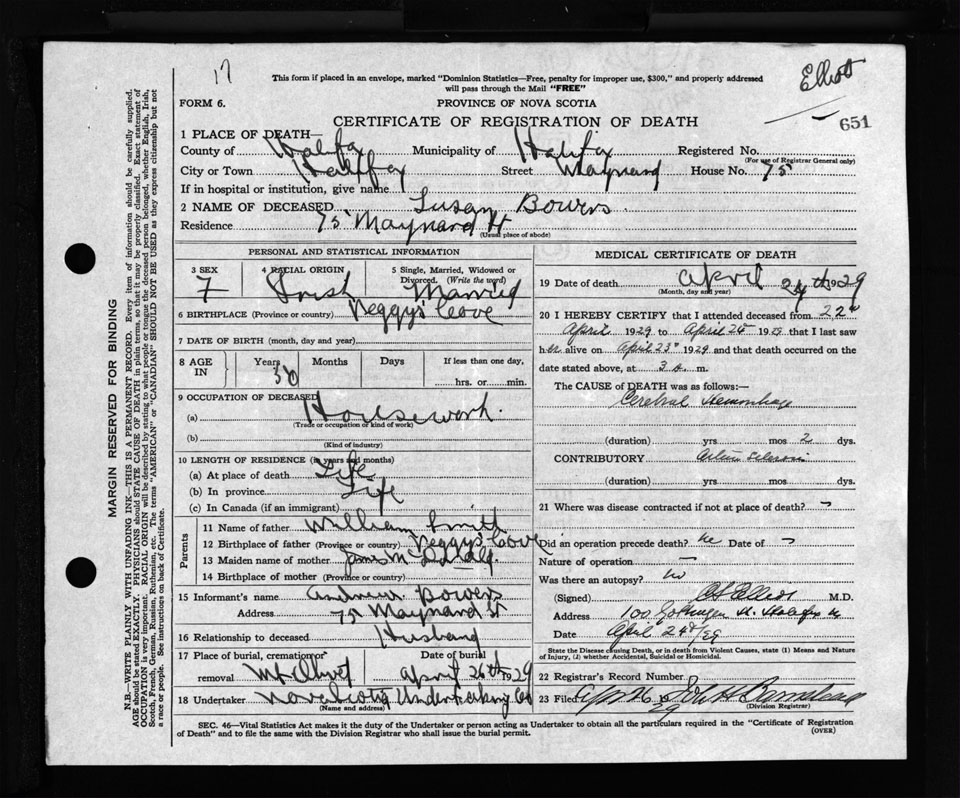 17
Elliott
651
This form if placed in an envelope, marked "Dominion Statistics—Free, penalty for improper use, $300," and properly addressed
will pass through the Mail "FREE"
FORM 6.
PROVINCE OF NOVA SCOTIA
CERTIFICATE OF REGISTRATION OF DEATH
1 PLACE OF DEATH—
County of Halifax Municipality of Halifax Registered No.
(For use of Registrar General only)
City or Town Halifax Street Maynard House No. 75
If in hospital or institution, give name
2 NAME OF DECEASED Susan Bowers
Residence 75 Maynard St
(Usual place of abode)
PERSONAL AND STATISTICAL INFORMATION
3 SEX F
4 RACIAL ORIGIN Irish
5 Single, Married, Widowed or
Divorced. (Write the word) Married
6 BIRTHPLACE (Province or country) Peggys Cove
7 DATE OF BIRTH (month, day and year)
8 AGE IN Years 50 Months Days If less than one day,
hrs. or min.
9 OCCUPATION OF DECEASED
(a) Housework.
(Trade or occupation or kind of work)
(b)
(Kind of industry)
10 LENGTH OF RESIDENCE (in years and months)
(a) At place of death Life
(b) In province Life
(c) In Canada (if an immigrant)
Parents
11 Name of father William Smith
12 Birthplace of father (Province or country) Peggys Cove
13 Maiden name of mother
14 Birthplace of mother (Province or country)
15 Informant's name Andrew Bowers
Address 75 Maynard St
16 Relationship to deceased Husband
17 Place of burial, cremation or Date of burial
removal Mt Olivet April 26th 1929
18 Undertaker Nova Scotia Undertaking Co
(Name and address)
MEDICAL CERTIFICATE OF DEATH
19 Date of death April 24th 1929
(Month, day and year)
20 I HEREBY CERTIFY that I attended deceased from 22nd
April 1929 to April 24th 1929 that I last saw
her alive on April 23rd 1929 and that death occurred on the
date stated above, at 3 a. m.
The CAUSE of DEATH was as follows:—
Cerebral Hemorrhage
(duration) yrs mos 2 dys.
CONTRIBUTORY
(duration) yrs mos dys.
21 Where was disease contracted if not at place of death? —
Did an operation precede death? no Date of —
Nature of operation —
Was there an autopsy? no
(Signed) Elliott M.D.
Address 100 Gottingen St. Halifax
Date April 24th/29
State the Disease causing Death, or in death from Violent Causes, state (1) Means and Nature
of Injury, (2) whether Accidental, Suicidal or Homicidal.
22 Registrar's Record Number
23 Filed Apr 26 1929 John H Barnstead
(Division Registrar)
SEC. 46—Vital Statistics Act makes it the duty of the Undertaker or person acting as Undertaker to obtain all the particulars required in the "Certificate of Registration
of Death" and to file the same with the Division Registrar who shall issue the burial permit.
(OVER)
MARGIN RESERVED FOR BINDING
N.B.—WRITE PLAINLY WITH UNFADING INK—THIS IS A PERMANENT RECORD. Every item of information should be carefully supplied.
AGE should be stated EXACTLY. PHYSICIANS should STATE CAUSE OF DEATH in plain terms, so that it may be properly classified. Exact statement of
OCCUPATION is very important. RACIAL ORIGIN will be described by stating to what people or tongue the deceased person belonged, whether English, Irish,
Scotch, French, German, Russian, Ruthenian, etc. The terms "AMERICAN" or "CANADIAN" SHOULD NOT BE USED as they express citizenship but not
a race or people. See instructions on back of Certificate.